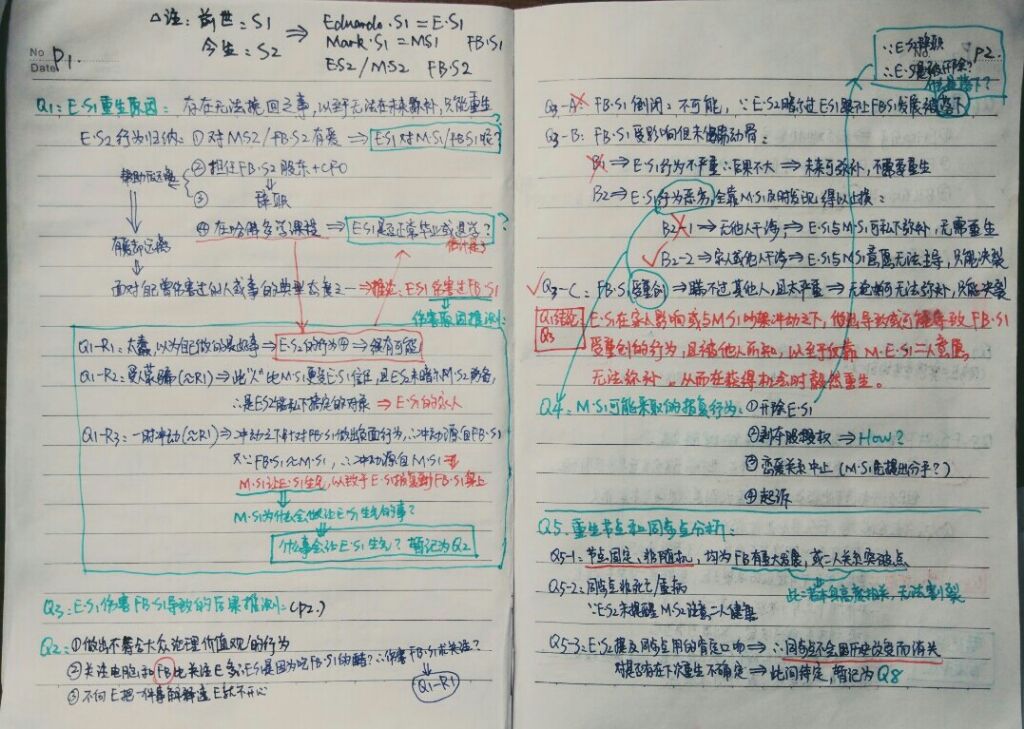 △注：前世＝S1 ⇒ Eduardo·S1＝E·S1
今生：S2 Mark·S1＝MS1 FB·S1
ES2／MS2 FB·S2
No
Date
P1.
Q1：E·S1重生原因：存在无法挽回之事，以至于无法在未来弥补，只能重生
E·S2行为归纳：①对MS2／FB·S2有爱 ⇒ E·S1对MS1／FB·S1呢？
②担任FB·S2股东＋CFO
③ 辞职
④在哈佛多学课程 ⇒ ES1是否正常毕业或退学？
面对自己曾伤害过的人或事的典型态度之一 → 推论：E·S1伤害过FB·S1
伤害原因推测：
Q1-R1：大蠢，以为自己做的是好事 → E·S2的行为④ → 很有可能
Q1-R2：受人蒙骗(≈R1) ⇒ 此“人”比M·S1更受E·S1信任，且ES2未暗示MS2防备，
∴是ES2能私下搞定的对象 ⇒ E·S1的家人
Q1-R3：一时冲动(≈R1) ⇒ 冲动之下针对FB·S1做出负面行为，∴冲动源自FB·S1
又∵FB·S1≈M·S1，∴冲动源自M·S1
M·S1让E·S1生气，以致于E·S1报复到FB·S1身上
M·S1为什么会做让E·S1生气的事？
什么事会让E·S1生气？暂记为Q2
Q3：E·S1伤害FB·S1导致的后果推测：(P2.)
Q2：①做出不符合大众伦理价值观的行为
②关注电脑和FB比关注E多
∴伤害FB·S1求关注？
Q1-R1
③不向E把一件事解释清E就不开心
P2.
∵E·S2辞职
Q3-A FB·S1倒闭：不可能，
Q3-B：FB·S1受影响但未伤筋动骨：
B1 ⇒ E·S1行为不严重∴后果不大 ⇒ 未来可弥补，不需要重生
B2 ⇒ E·S1行为恶劣，全靠M·S1及时发现，得以止损：
B2-1 ⇒ 无他人干涉 ⇒ E·S1与M·S1可私下弥补，无需重生
B2-2 ⇒ 家人或他人干涉 ⇒ E·S1与M·S1意愿无法主导，只能决裂
Q3-C：FB·S1受重创 ⇒ 瞒不过其他人，且太严重 ⇒ 无论如何无法弥补，只能决裂
Q1结论： E·S1在家人影响或与M·S1吵架冲动之下，做出导致或可能导致FB·S1
Q3 受重创的行为，且被他人所知，以至于仅靠M·E·S1二人意愿，
无法弥补，从而在获得机会时毅然重生。
Q4：M·S1可能采取的报复行为：①开除E·S1
②剥夺股权 ⇒ How？
③恋爱关系中止(M·S1先提出分手？)
④起诉
Q5.重生节点和同步点分析：
Q5-1：节点固定、非随机，均为FB有重大发展，或二人关系突破点
此二者本身高度相关，无法割裂
Q5-2：同步点非死亡／重病
∵ES2未提醒MS2注意二人健康
Q5-3：E·S2提及同步点用的肯定口吻 ⇒ ∴同步点不会因历史改变而消失
对是否存在下次重生不确定 ⇒ 此问待定，暂记为Q8